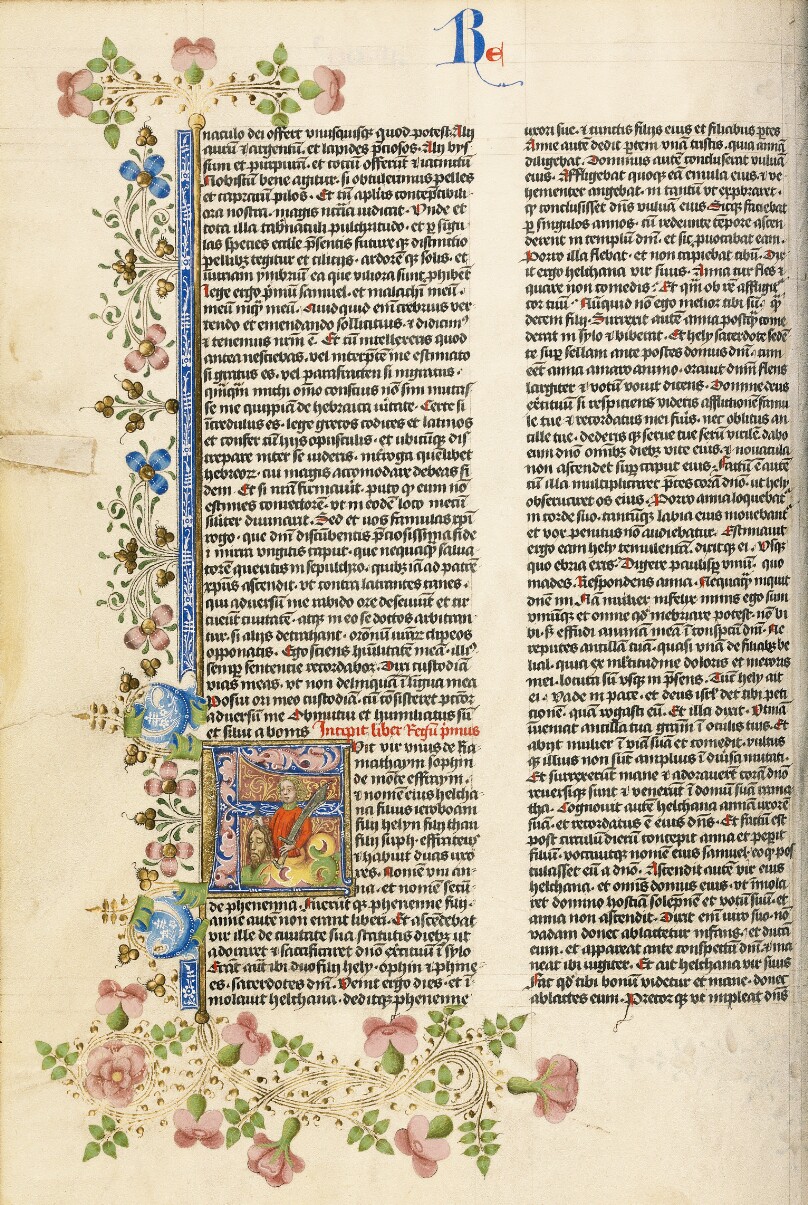 Re
naculo dei offert vnusquisq; quod potest. Alij
aurū ⁊ argentū. et lapides p̄ciosos. Alij bys
sum et purpurā. et coccū offerūt ⁊ iacinctū
Nobiscū bene agitur. si obtulerimus pelles
et capraꝝ pilos. Et tn̄ aplūs contēptibili
ora nostra. magis nccīa iudicat. Vnde et
tota illa tab̄naculi pulchritudo. et ꝑ sīgu
las species ecclīe p̄sentis futureq; distinctio
pellibꝫ tegitur et cilicijs. ardorēq; solis. et
iniuriam ymbriū ea que viliora sunt phībēt
Lege ergo pīmū samuel. et malachī meū.
meū inq̄ meū. Quidquid em̄ crebrius ver
tendo et emendando sollicitius ⁊ didicim⁹
⁊ tenemus nr̄m ē. Et cū intellexeris quod
antea nesciebas. vel interpr̄tē me estimato
si gratus es. vel parafrasten si ingratus.
q̄mq̄m michi omīo conscius nō sim mutas
se me quippiā de hebraica ūitate. Certe si
īcredulus es. lege grecos codices et latinos
et confer cū hijs opusculis. et ubicūq; dis
crepare inter se videris. īnterroga quēlibet
hebreoꝝ. cui magis accomodare debeas fi
dem. Et si nr̄a firmauit. puto q̄ eum nō
estimes coniectorē. vt in eodē loco mecū
sīliter diuinarit. Sed et uos famulas xp̄i
rogo. que dn̄i discūbentis p̄ciosissima fide
ī mirra vngitis caput. que nequaq̄ salua
torē queritis in sepulchro. quibꝫ iā ad patrē
xp̄us ascendit. vt contra latrantes canes.
qui adversū me rabido ore deseuiūt et cir
cueūt ciuitatē. atq; in eo se doctos arbitran
tur. si alijs detrahant. oronū ūrāꝝ clipeos
opponatis. Ego sciens hūilitatē meā. illi⁹
semꝑ sententie recordabor. Dixi custodiā
vias meas. vt non delinquā ī līgua mea
Posui ori meo custodiā. cū cōsisteret pctōr
adversū me Obmutui et humiliatus sū
et silui a bonis Incipit liber Regū p̄mus
Vit vir vnus de Ra-
mathaym sophin
de mōte effraym.
⁊ nomē eius helcha-
na filius ieroboam
filij helyu filij thau
filij suph. effrateus
⁊ habuit duas uxo
res. Nomē vni an-
na. et nomē secū-
de phenenna. Fuerūt q; phenenne filij.
anne autē non erant liberi. Et ascēdebat
vir ille de ciuitate sua statutis diebꝫ ut
adoraret ⁊ sacrificaret dn̄o exrcituū ī sylo
Erāt aūt ibi duo filij hely. ophni ⁊ phine
es. sacerdotes dn̄i. Venit ergo dies. et ī
molauit helchana. dedit q; phenenne
uxori sue. ⁊ cunctis filijs eius et filiabus ptes
Anne autē dedit ptem vnā tristis. quia annā
diligebat. Dominus autē concluserat vuluā
eius. Affligebat quoq; eā emula eius. ⁊ ve
hementer angebat. in tantū vt exprobraret.
q̄ conclusisset dn̄s vuluā eius. Sicq; faciebat
ꝑ singulos annos. cū redeunte tēpore ascen
derent in templū dn̄i. et sic ꝓuocabat eam.
Porro illa flebat. et non capiebat cibū. Dix
it ergo helchana vir suus. Anna cur fles ⁊
quare non comedis. Et qm̄ ob rē affligit
cor tuū. Nūquid nō ego melior tibi sū. q̄
decem filij. Surrexit autē anna postq̄ come
derat in sylo ⁊ biberat. Et hely sacerdote sedē
te suꝑ sellam ante postes domus dn̄i. cum
eēt anna amaro animo. orauit dn̄m flens
largiter ⁊ votū vouit dicens. Domine deus
exrcituū si respiciens videris afflictionē famu
le tue ⁊ recordatus mei fūis. nec oblitus an
cille tue. dederisq; serue tue sexū virilē. dabo
eum dn̄o omībꝫ diebꝫ vite ei⁹. ⁊ nouacula
non ascendet suꝑ caput eius. Factū ē autē
cū illa multiplicaret p̄ces corā dn̄o. ut hely
obseruaret os eius. Porro anna loquebat̄
in corde suo. tantūq; labia eius mouebant̄
et vox penitus nō audiebatur. Estimauit
ergo eam hely temulentā. dixitq; ei. Vsq;
quo ebria eris. Digere paulisꝑ vinū. quo
mades. Respondens anna. Nequaq̄ inquit
dn̄e mi. Nā mulier infelix nimis ego sum
vinūq; et omne qd̄ inebriare potest. nō bi
bi. sꝫ effūdi animā meā ī conspctū dn̄i. Ne
reputes ancillā tuā. quasi vnā de filiabꝫ be
lial. quia ex ml̄titudine doloris et meroris
mei. locuta sū vsq; in p̄sens. Tūc hely ait
ei. Vade in pace. et deus isrl̄ det tibi peti
cionē. quā rogasti eū. Et illa dixit. Vtinā
inueniat ancilla tua grām̄ ī oculis tuis. Et
abijt mulier ī viā suā et comedit. vultus
q; illius non sūt amplius ī diūsa mutati.
Et surrexerūt mane ⁊ adorauerūt corā dn̄o
reuersiq; sunt ⁊ venerūt ī domū suā rama
tha. Cognouit autē helchana annā uxorē
suā. et recordatus ē eius dn̄s. Et factū est
post circulū dieꝝ concepit anna et peꝑit
filiū. vocauitq; nomē eius samuel. eo q̄ pos
tulasset eū a dn̄o. Ascendit autē vir eius
helchana. et omīs domus eius. vt īmola
ret domino hostiā solēpnē et votū suū. et
anna non ascendit. Dixit em̄ uiro suo. nō
vadam donec ablactetur infans. et ducā
eum. et appareat ante conspectū dn̄i. ⁊ ma
neat ibi iugiter. Et ait helchana vir suus
Fac qd̄ tibi bonū videtur et mane. donec
ablactes eum. Precorq; vt impleat dn̄s